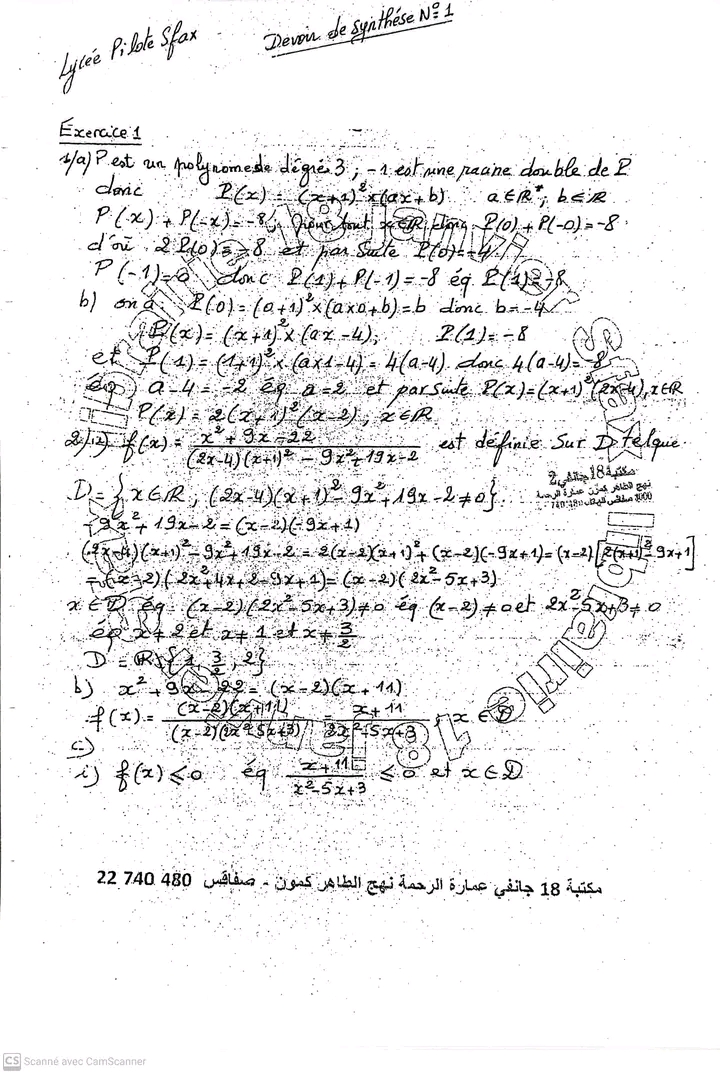 Lycée Pilote Sfax
Devoir de synthèse N° 1
Exercice 1
1/a) P est un polynome de dégré 3, -1 est une racine double de P
donc P(x) = (x+1)² × (ax+b) a∈ℝ*, b∈ℝ
P(x) + P(-x) = -8, pour tout x∈ℝ donc P(0) + P(-0) = -8
d'où 2P(0) = -8 et par suite P(0) = -4.
P(-1) = 0 donc P(1) + P(-1) = -8 éq P(1) = -8
b) on a P(0) = (0+1)² × (a×0+b) = b donc b = -4
P(x) = (x+1)² × (ax-4), P(1) = -8
et P(1) = (1+1)² × (a×1-4) = 4(a-4) donc 4(a-4) = -8
éq a-4 = -2 éq a=2 et par suite P(x) = (x+1)² (2x-4), x∈ℝ
P(x) = 2(x+1)² (x-2), x∈ℝ
f(x) = x²+9x-22 / (2x-4)(x+1)² - 9x²+19x-2 est définie sur D telque
D = {x∈ℝ, (2x-4)(x+1)² - 9x²+19x-2 ≠ 0}
-9x²+19x-2 = (x-2)(-9x+1)
(2x-4)(x+1)² - 9x²+19x-2 = 2(x-2)(x+1)² + (x-2)(-9x+1) = (x-2)[2(x+1)²-9x+1]
= (x-2)(2x²+4x+2-9x+1) = (x-2)(2x²-5x+3)
x∈D éq (x-2)(2x²-5x+3) ≠ 0 éq (x-2) ≠ 0 et 2x²-5x+3 ≠ 0
éq x≠2 et x≠1 et x≠3/2
D = ℝ\{1, 3/2, 2}
b) x²+9x-22 = (x-2)(x+11)
f(x) = (x-2)(x+11) / (x-2)(2x²-5x+3) = x+11 / 2x²-5x+3, x∈D
c)
i) f(x) ≤ 0 éq x+11 / x²-5x+3 ≤ 0 et x∈D
مكتبة 18 جانفي عمارة الرحمة نهج الطاهر كمون - صفاقس 22 740 480
librairie 18 janvier Sfax
CS Scanné avec CamScanner